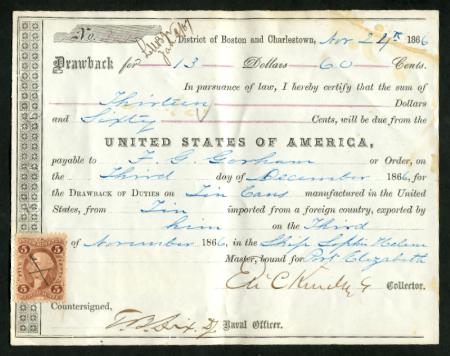 No.
District of Boston and Charlestown, Nov 24th 1866
Drawback for 13 Dollars 60 Cents.
In pursuance of law, I hereby certify that the sum of
Thirteen Dollars
and Sixty Cents, will be due from the
UNITED STATES OF AMERICA,
payable to F. G. Gorham or Order, on
the Third day of December 1866, for
the DRAWBACK OF DUTIES on Tin Cans manufactured in the United
States, from Tin imported from a foreign country, exported by
him on the Third
of November 1866, in the Ship Helen
Master, bound for Port Elizabeth
Collector.
5 5
Countersigned,
Naval Officer.